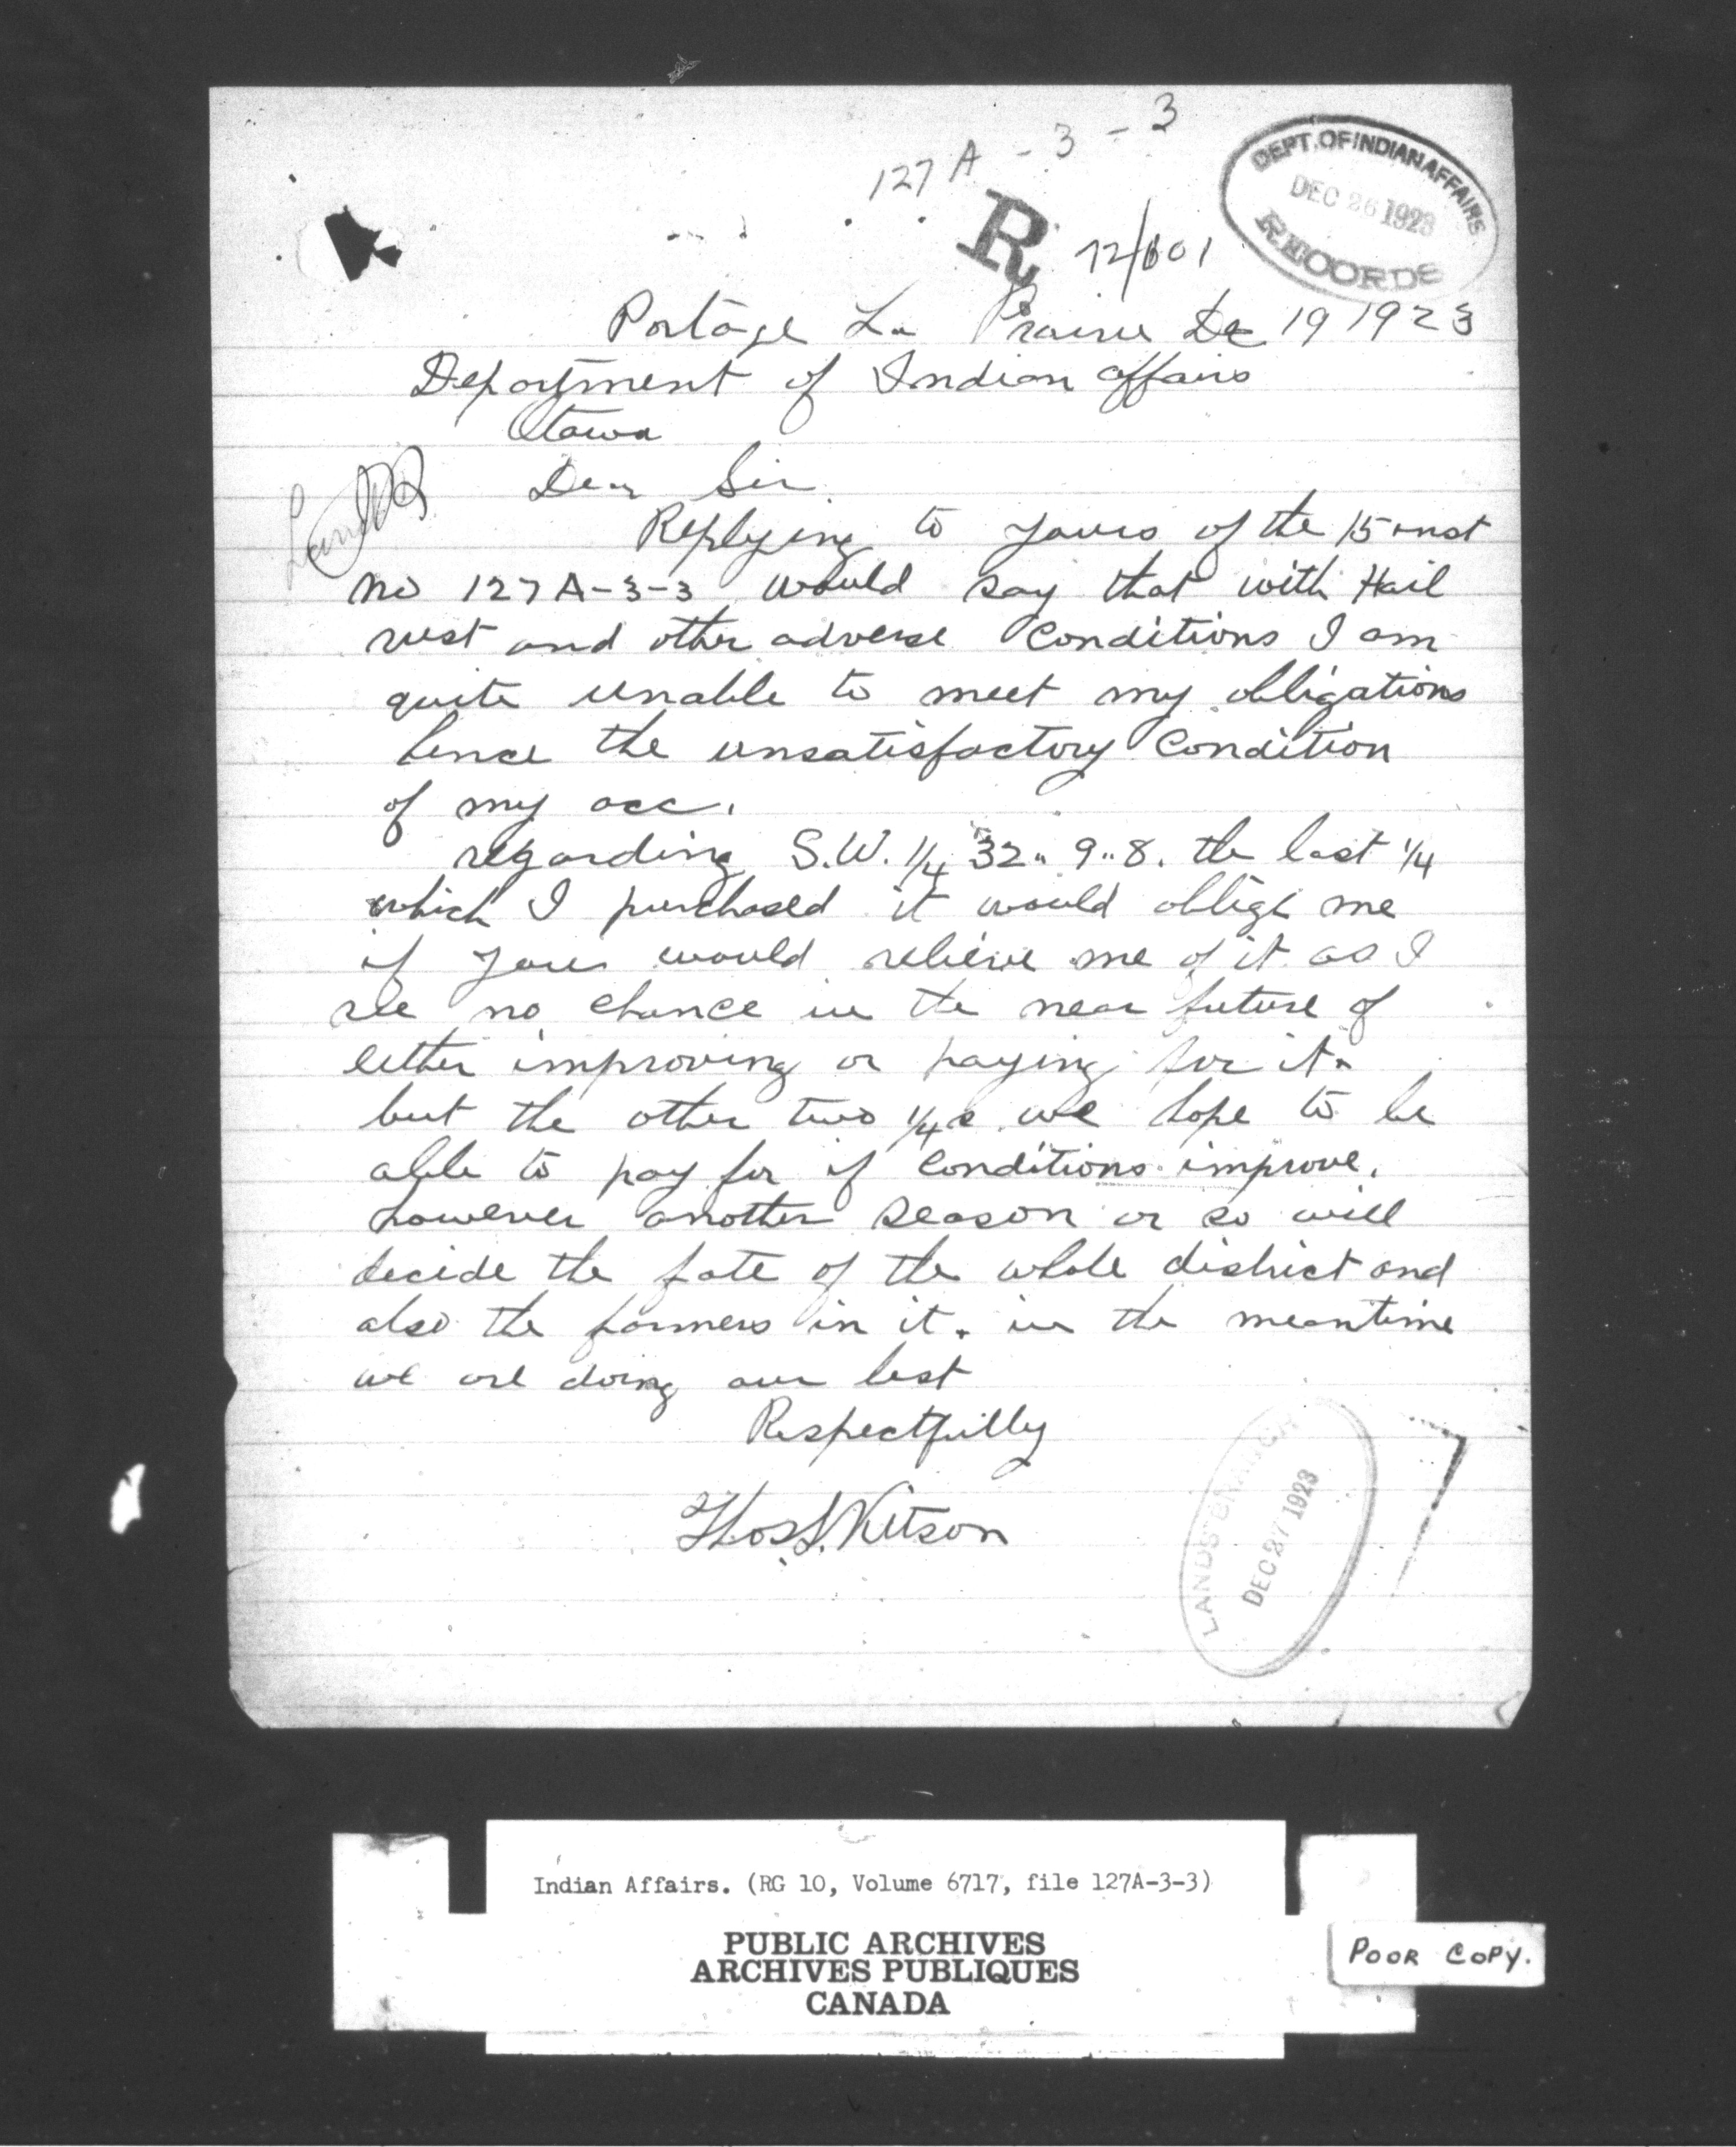 127A - 3 - 3
DEPT. OF INDIAN AFFAIRS
DEC 26 1923
RECORDS
R
Portage La Prairie De 19 1923
Department of Indian affairs
Ottawa
Dear Sir
Replying to yours of the 15 inst
no 127A-3-3 would say that with Hail
rust and other adverse Conditions I am
quite unable to meet my obligations
hence the unsatisfactory Condition
of my acc.
regarding S.W. 1/4 32" 9"8. the last 1/4
which I purchased it would oblige me
if you would relieve me of it as I
see no chance in the near future of
either improving or paying for it.
but the other two 1/4s we hope to be
able to pay for if Conditions improve.
however another season or so will
decide the fate of the whole district and
also the farmers in it. in the meantime
we are doing our best
Respectfully
Thos. Kitson
LANDS BRANCH
DEC 27 1923
Indian Affairs. (RG 10, Volume 6717, file 127A-3-3)
PUBLIC ARCHIVES
ARCHIVES PUBLIQUES
CANADA
POOR COPY.